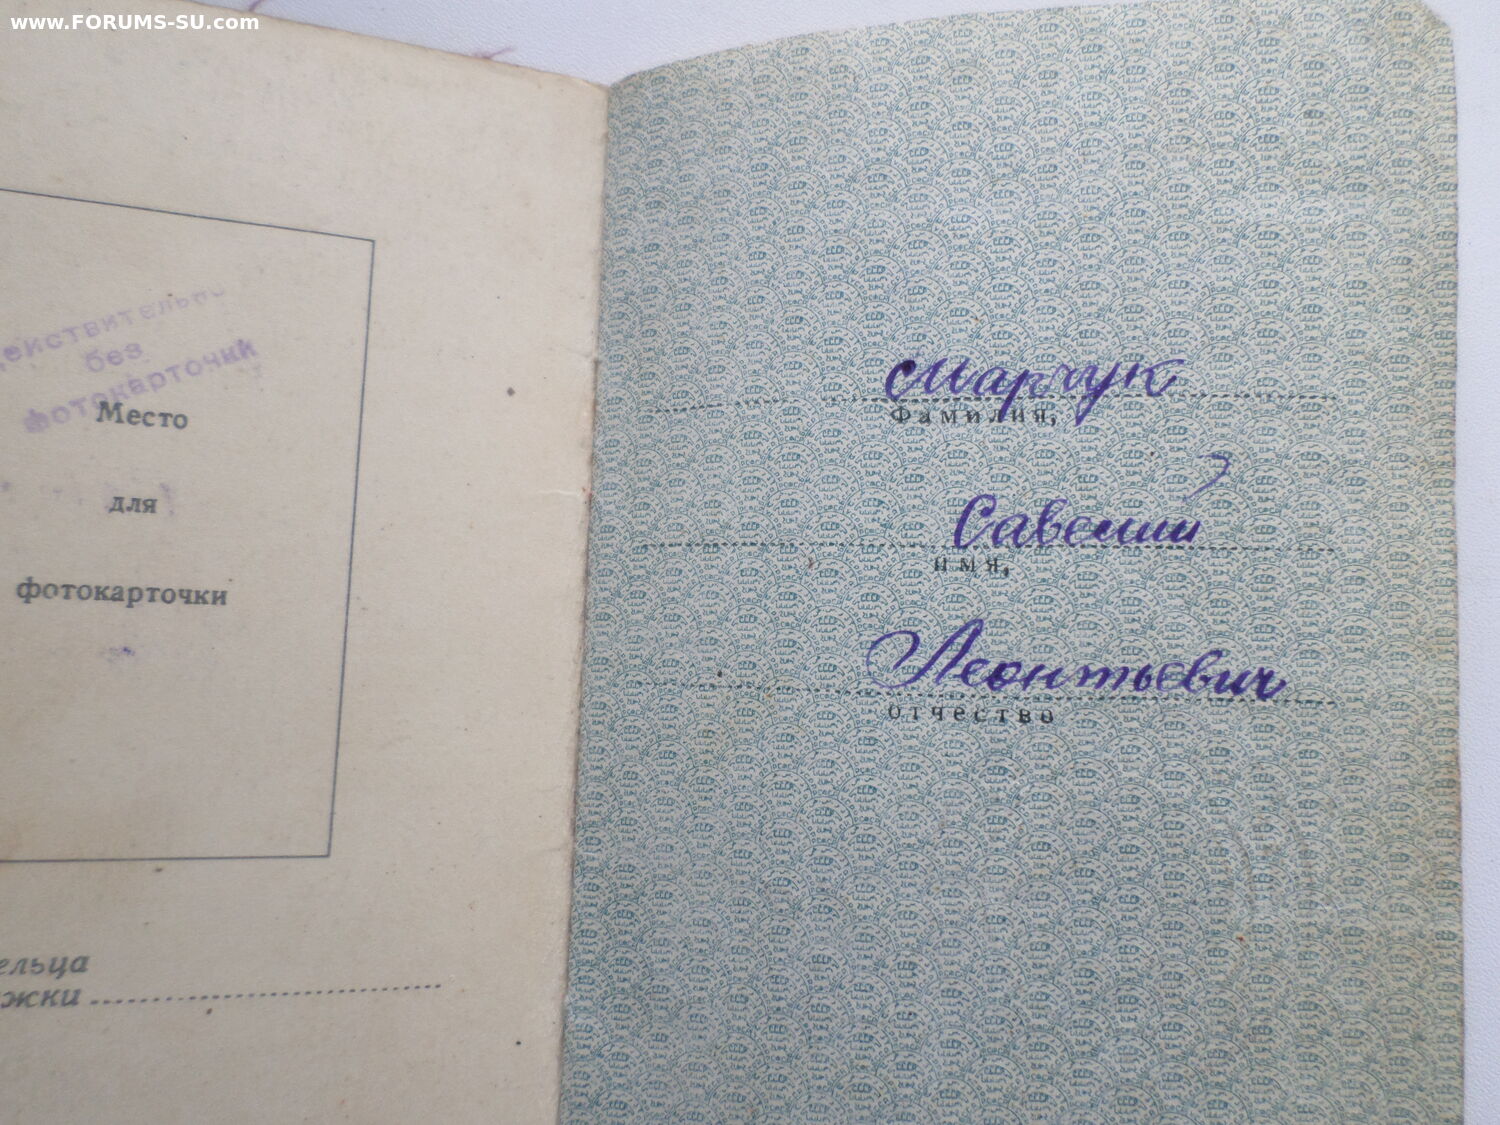 www.FORUMS-SU.com
ействительно
без
фотокарточки
Место
для
фотокарточки
ельца
жки
Марчук
Фамилия,
Савелий
имя,
Леонтьевич
отчество